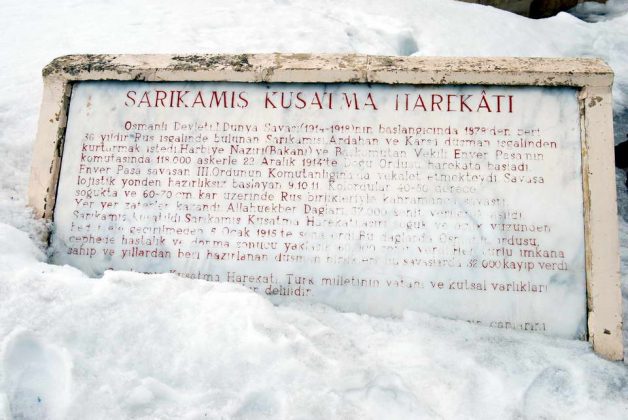 SARIKAMIŞ KUŞATMA HAREKÂTI
Osmanlı Devleti I.Dünya Savaşı(1914-1918)'nın başlangıcında 1878'den beri
36 yıldır Rus işgalinde bulunan Sarıkamış,Ardahan ve Kars'ı düşman işgalinden
kurtarmak istedi.Harbiye Nazırı(Bakanı) ve Başkomutan Vekili Enver Paşa'nın
komutasında 118.000 askerle 22 Aralık 1914'te Doğu Ordusu harekata başladı.
Enver Paşa savaşan III.Ordunun Komutanlığına da vekalet etmekteydi. Savaşa
lojistik yönden hazırlıksız başlayan 9.10.11. Kolordular 40-50 derece
soğukta ve 60-70 cm kar üzerinde Rus birlikleriyle kahramanca savaştı
Yer yer zaferler kazandı Allahuekber Dağları 37.000 şehit verilerek aşıldı
Sarıkamış kuşatıldı Sarıkamış Kuşatma Harekatı soğuk ve yüzünden
geçirilmeden 5 Ocak 1915'te Bu dağlarda ordusu,
cephede hastalık ve donma sonucu imkana
sahip ve yıllardan beri hazırlanan düşman savaşlarda 32 000 kayıp verdi
Kuşatma Harekatı, Türk milletinin vatanı ve kutsal varlıkları
delilidir.